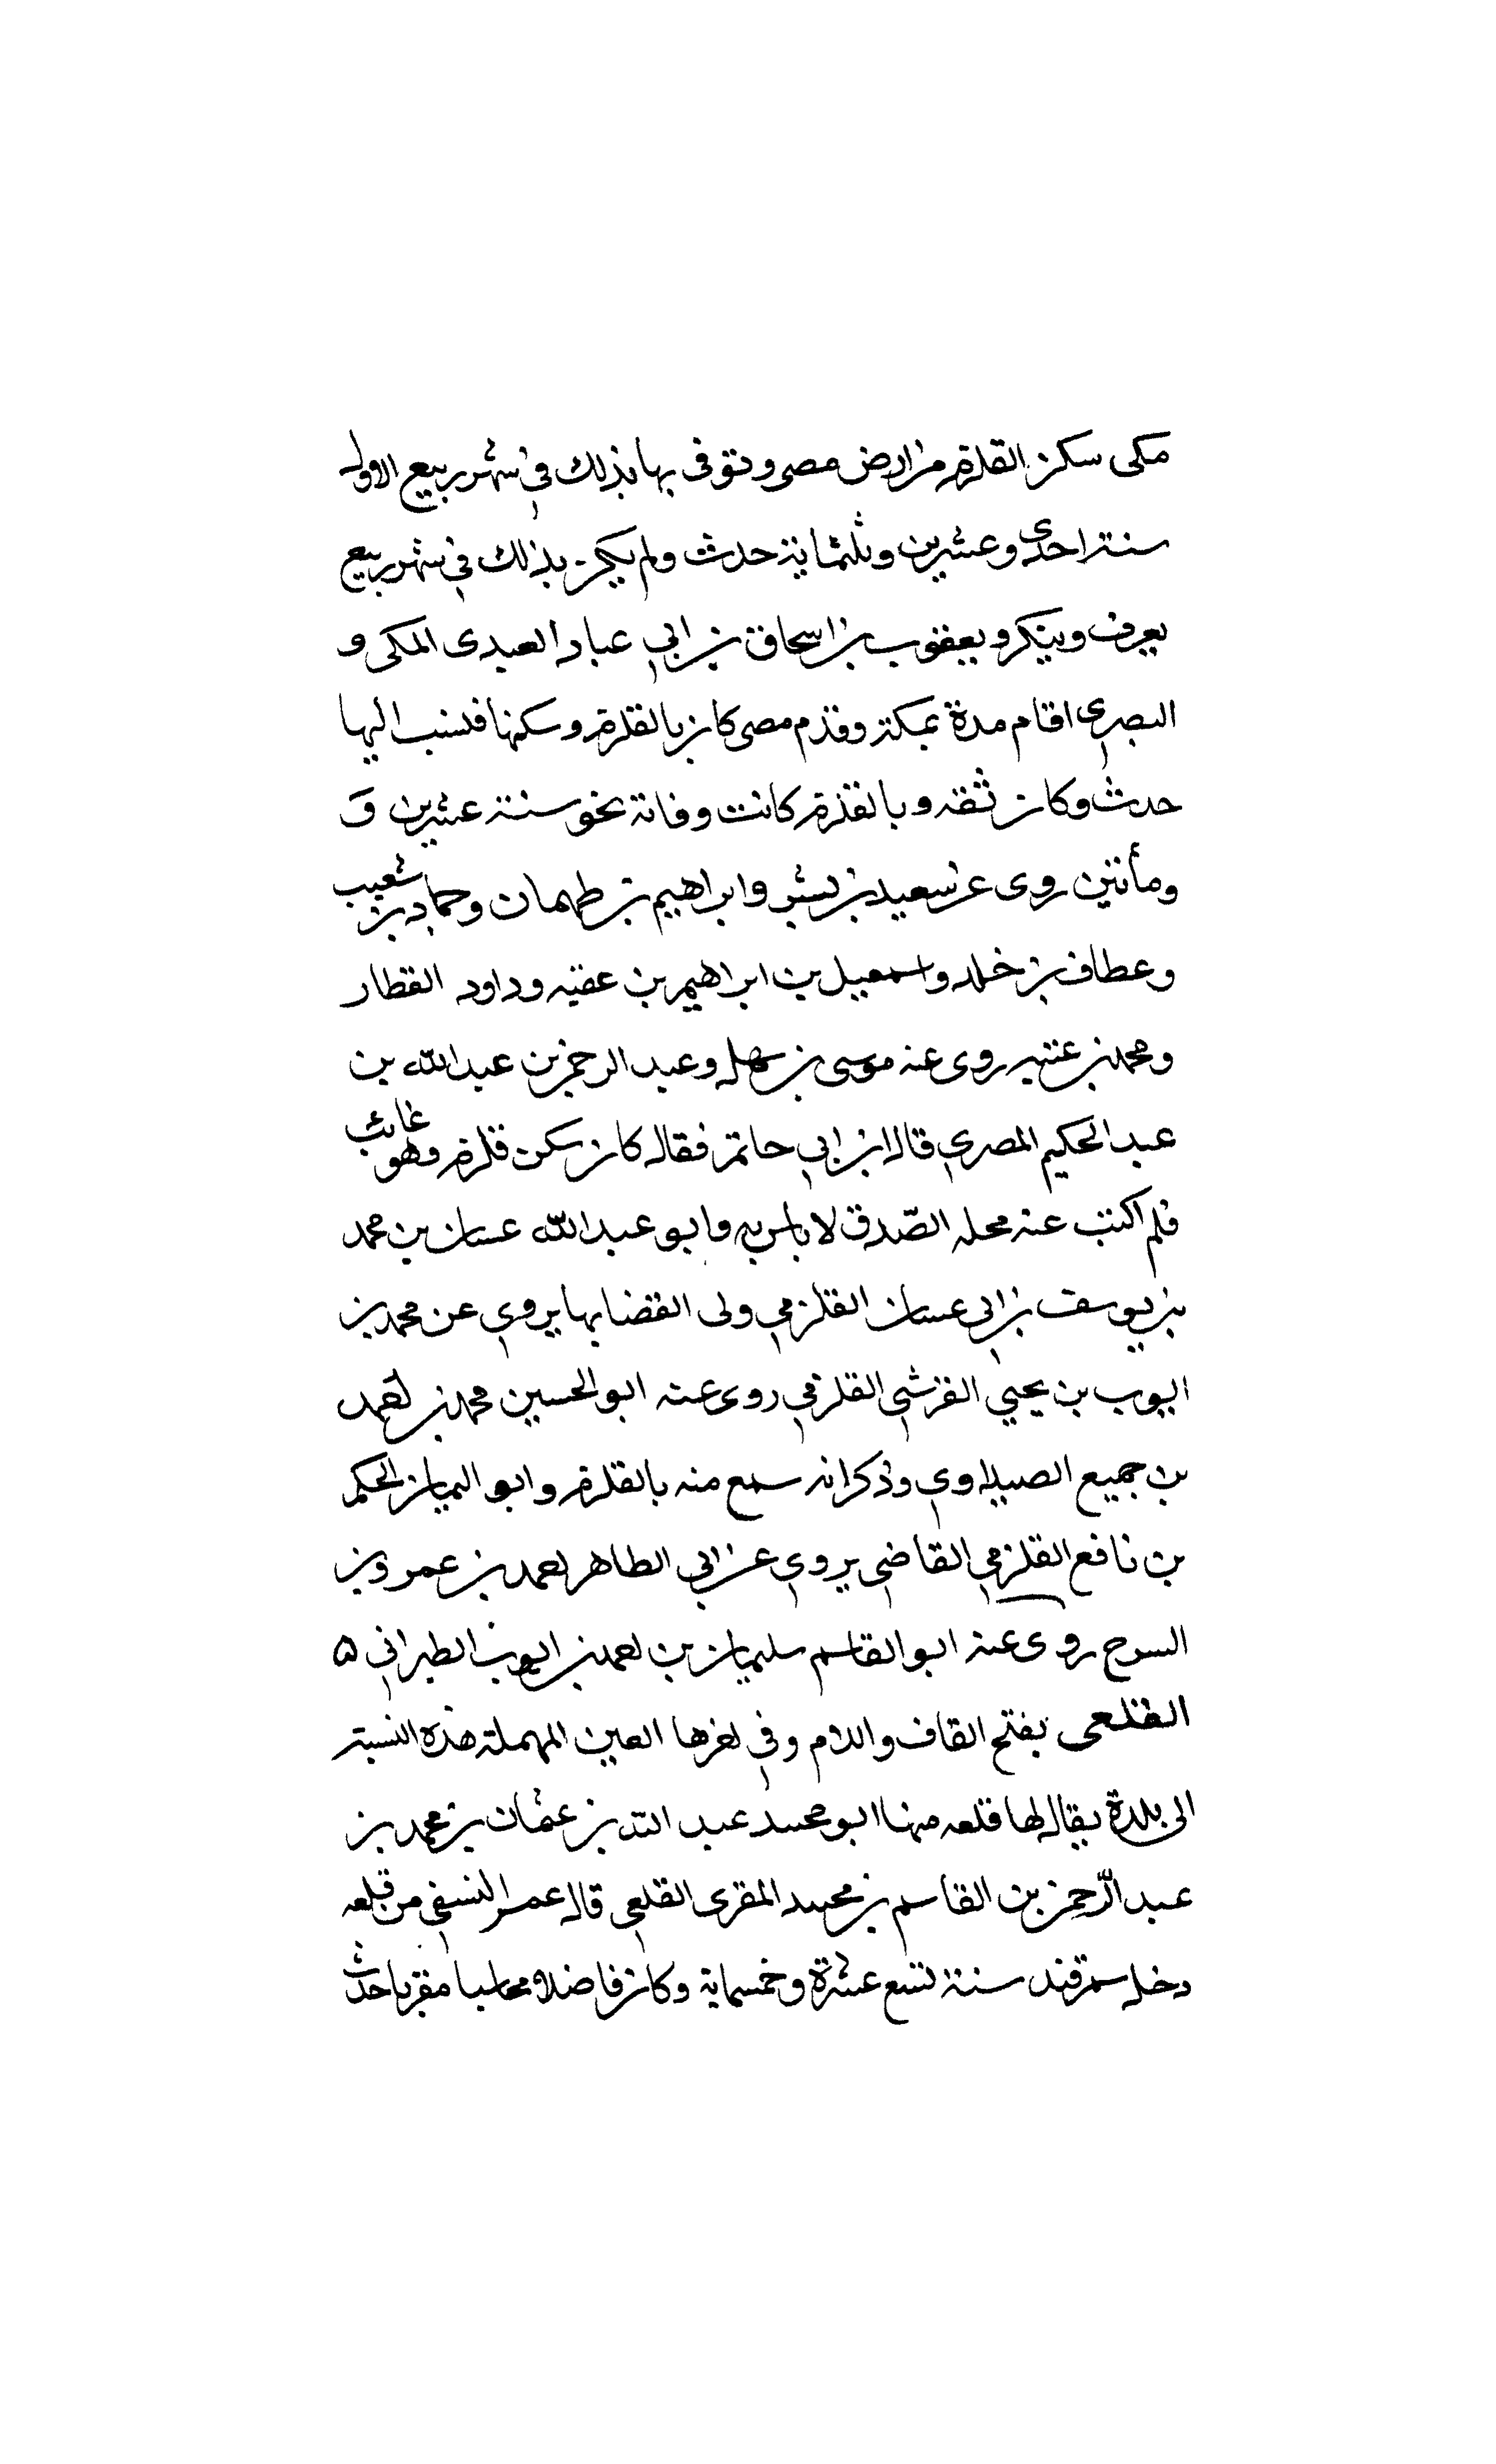 مكى سكن القلزم من ارض مصر وتوفى بها بذلك في شهر ربيع الاول
سنة احدى وعشرين وثلثماية حدث ولم يكن بذلك في شهر ربيع
يعرف وينكر ويعقوب بن اسحاق بن ابي عباد العبدى المكى و
البصري اقام مدة بمكة وقدم مصر كان بالقلزم وسكنها فنسب اليها
حدث وكان ثقه وبالقلزم كانت وفاته نحو سنة عشرين و
ومأتين روى عن سعيد بن بشير وابراهيم بن طهمان وحماد بن شعيب
وعطاف بن خلد واسمعيل بن ابراهيم بن عقبه وداود القطار
ومحمد بن عتبه روى عنه موسى بن سهل وعبد الرحمن بن عبد الله بن
عبد الحكيم المصري قال ابن ابي حاتم فقال كان سكن قلزم وهو غائب
فلم اكتب عنه محله الصّدق لا باس به وابو عبد الله غسان بن محمد
بن يوسف بن ابي غسان القلزمي ولى القضا بها يروي عن محمد بن
ايوب بن يحيي القرشي القلزمي روى عنه ابو الحسين محمد بن احمد
بن جميع الصيداوي وذكر انه سمع منه بالقلزم وابو اليمان الحكم
بن نافع القلزمي القاضي يروي عن ابي الطاهر احمد بن عمرو بن
السرح روى عنه ابو القاسم سليمان بن احمد بن ايوب الطبراني ه
القلعى بفتح القاف واللام وفي اخرها العين المهملة هذه النسبة
الى بلدة يقال لها قلعه منها ابو محمد عبد الله بن عثمان بن محمد بن
عبد الرّحمن بن القاسم بن محمد المقرى القلعي قال عمر النسفي من قلعه
دخل سمرقند سنة تسع عشرة وخمسماية وكان فاضلا مقريا حدث